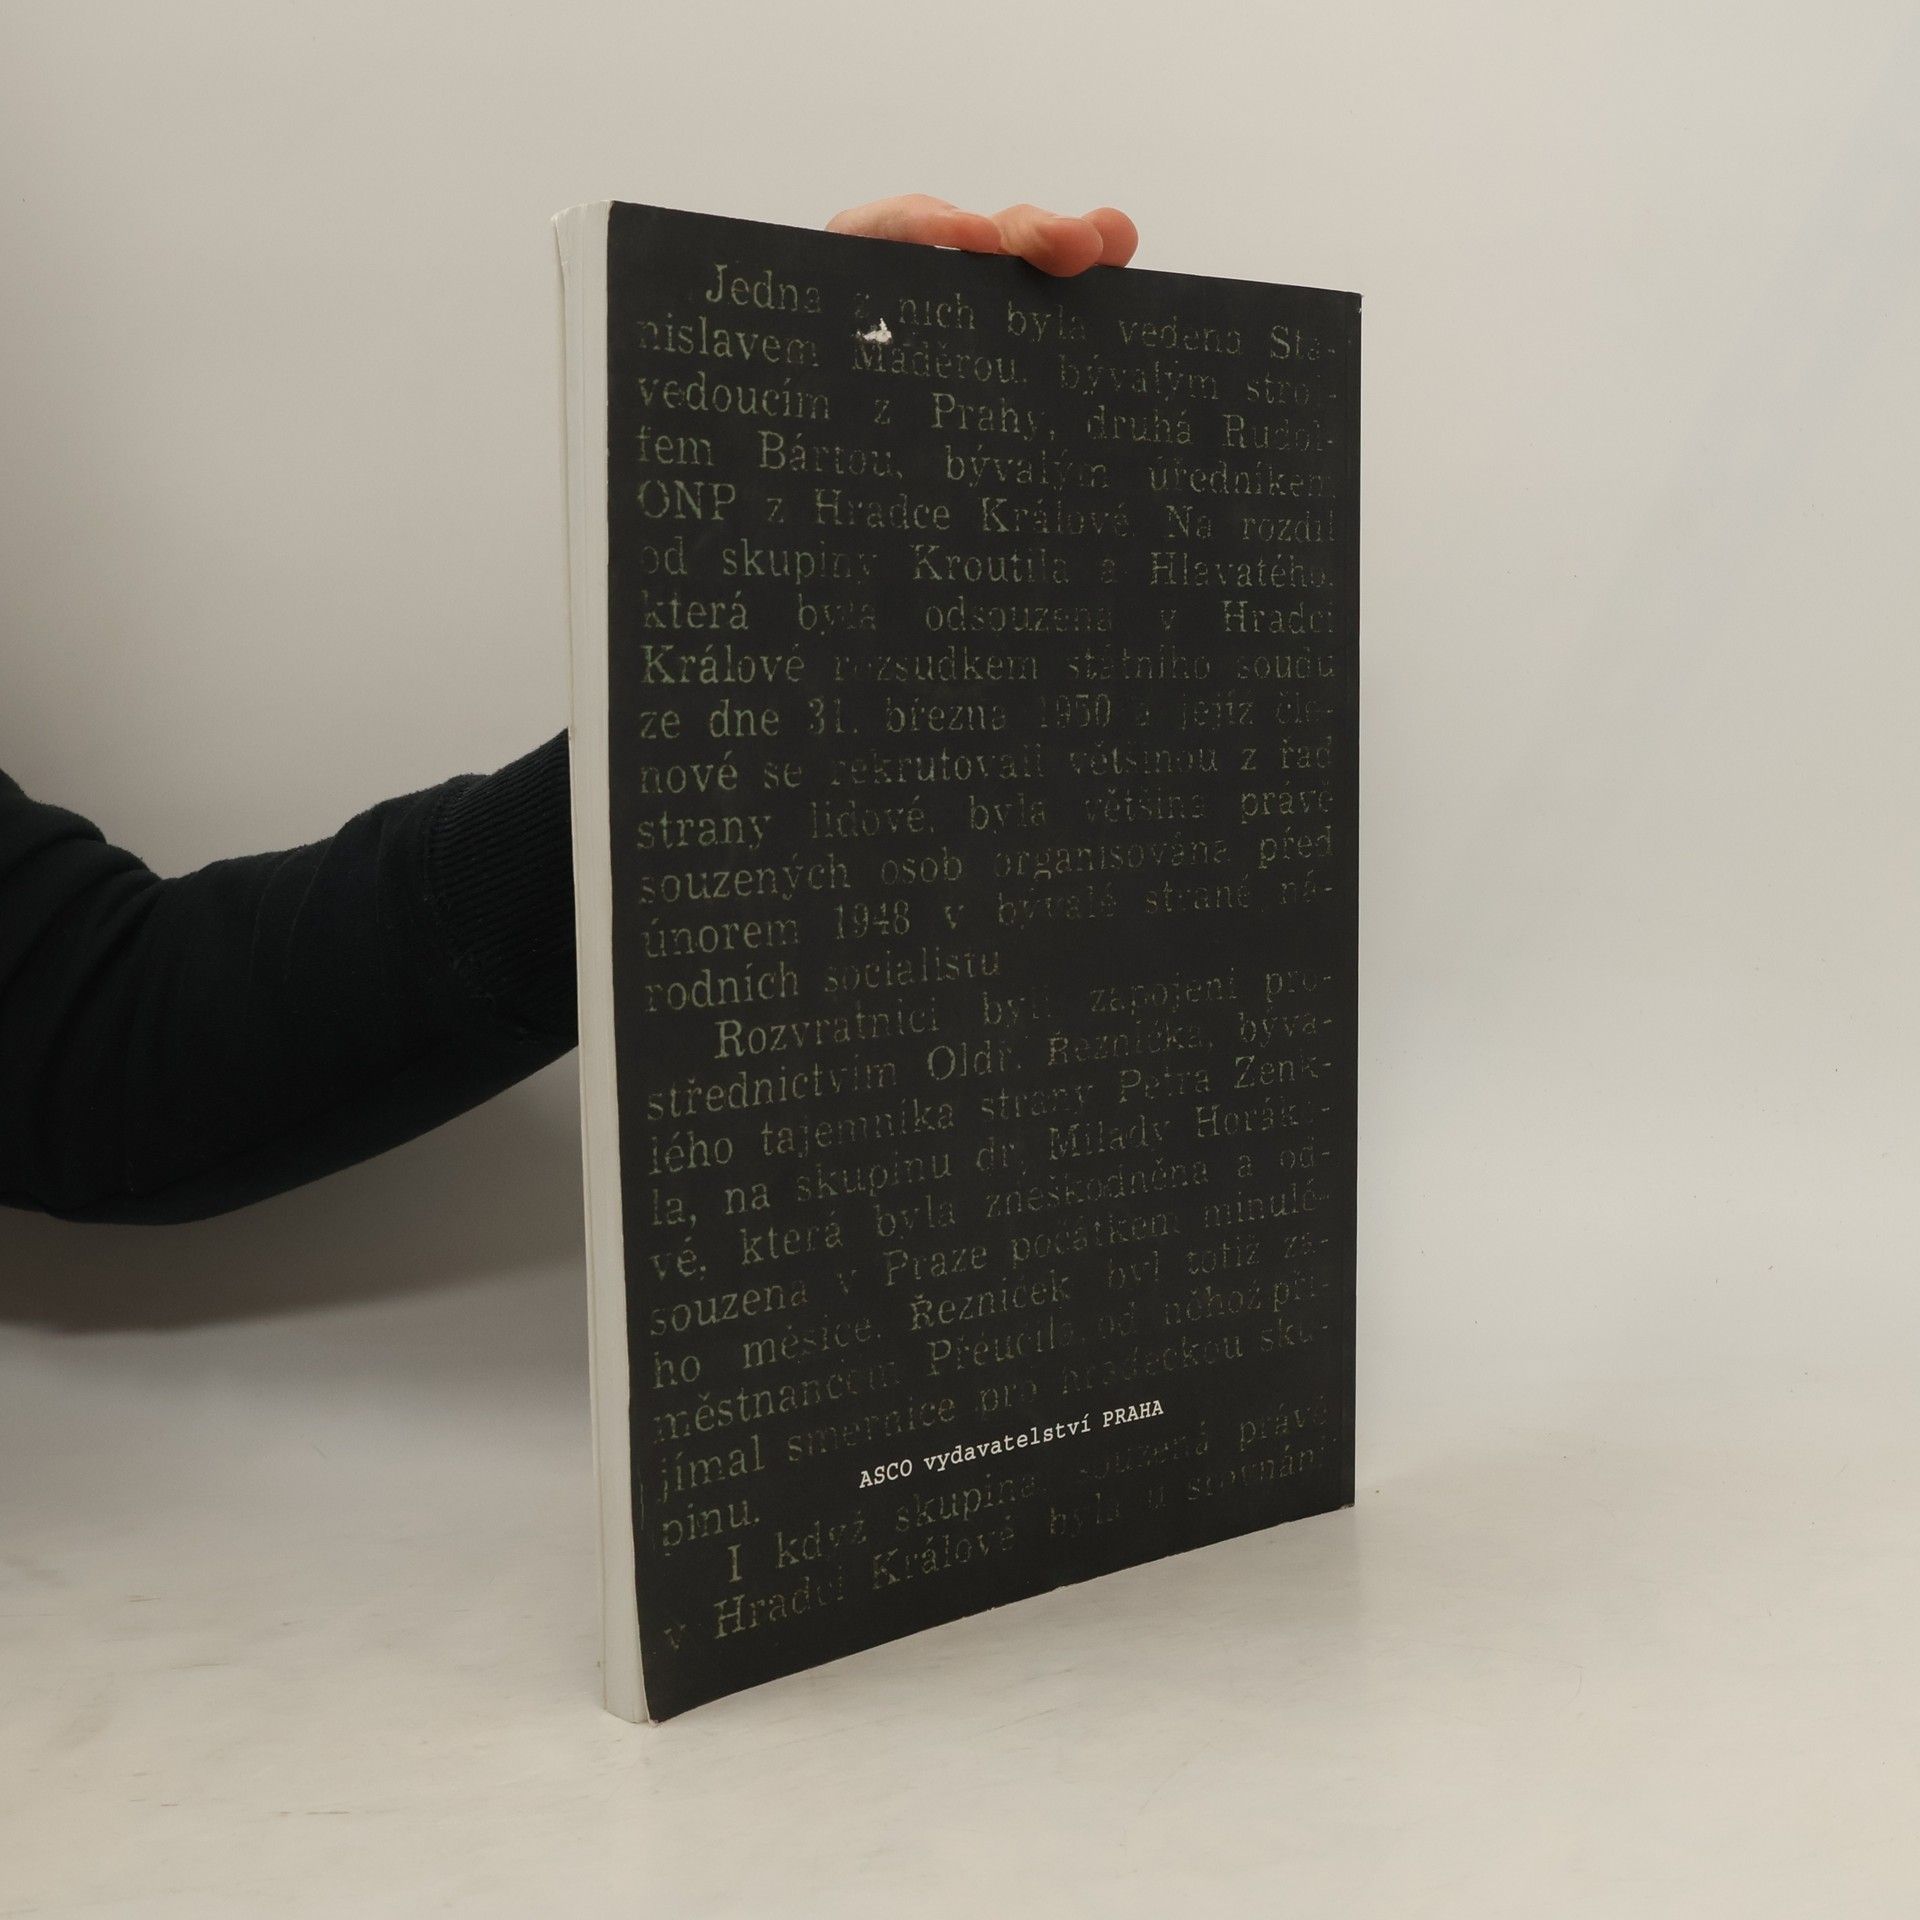 Jedna z nich byla vedena Sta-
nislavem Maděrou, bývalým stroj-
vedoucím z Prahy, druhá Rudol-
fem Bártou, bývalým úředníkem
ONP z Hradce Králové. Na rozdíl
od skupiny Kroutila a Hlavatého,
která byla odsouzena v Hradci
Králové rozsudkem státního soudu
ze dne 31. března 1950 a jejíž čle-
nové se rekrutovali většinou z řad
strany lidové, byla většina právě
souzených osob organisována před
únorem 1948 v bývalé straně ná-
rodních socialistu
Rozvratníci byli zapojeni pro-
střednictvím Oldř. Řezníčka, býva-
lého tajemníka strany Petra Zenk-
la, na skupinu dr. Milady Horáko-
vé, která byla zneškodněna a od-
souzena v Praze počátkem minulé-
ho měsíce. Řezníček byl totiž za-
městnancem Přeučila, od něhož při-
jímal směrnice pro hradeckou sku-
pinu.
ASCO vydavatelství PRAHA
I když skupina, souzená právě
v Hradci Králové byla u srovnání